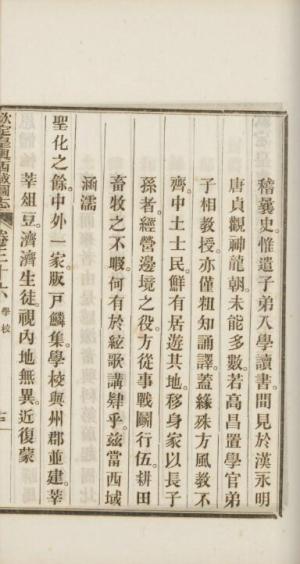 稽曩史。惟遣子弟入學讀書。間見於漢永明
唐貞觀神龍朝。未能多數。若高昌置學官弟
子相教授。亦僅粗知誦譯。蓋緣殊方風教不
齊。中土士民。鮮有居遊其地。移身家以長子
孫者。經營邊境之役。方從事戰鬭行伍。耕田
畜牧之不暇。何有於絃歌講肄乎。茲當西域
涵濡
聖化之餘。中外一家。版戸鱗集。學校與州郡並建。莘
莘俎豆。濟濟生徒。視内地無異。近復蒙
欽定皇輿西域圖志 卷三十六 學校